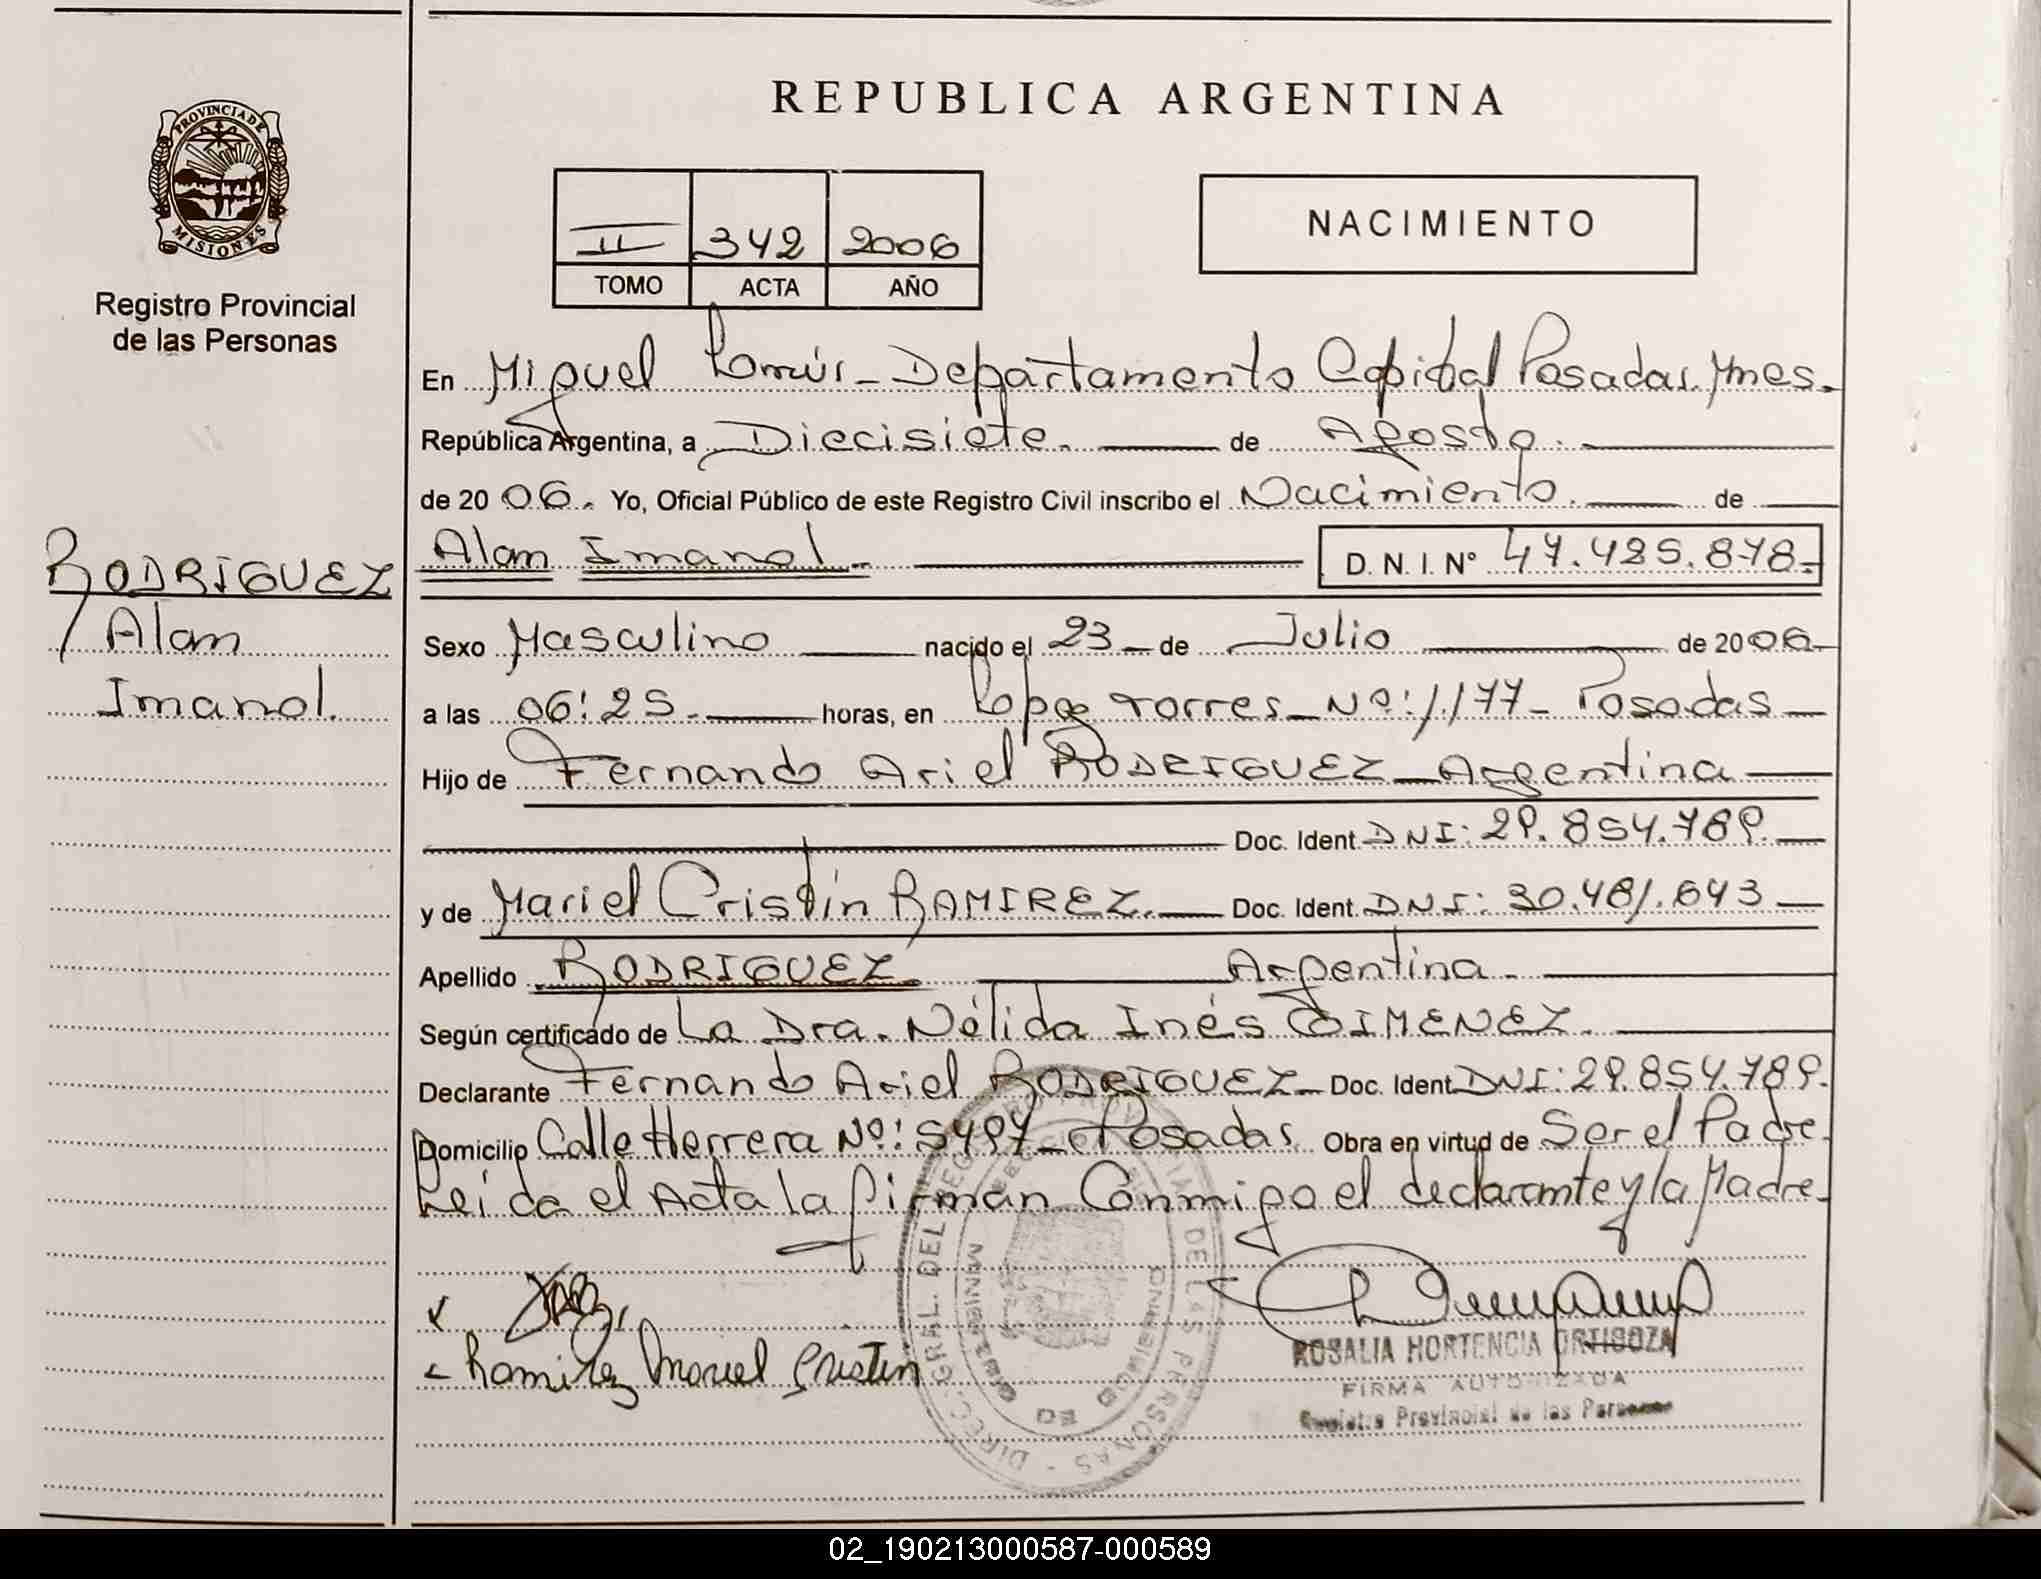 PROVINCIA DE
MISIONES
Registro Provincial
de las Personas
RODRIGUEZ
Alan
Imanol.
REPUBLICA ARGENTINA
II 342 2006
TOMO ACTA AÑO
NACIMIENTO
En Miguel Lanús - Departamento Capital Posadas. Mnes.
República Argentina, a Diecisiete. de Agosto.
de 20 06. Yo, Oficial Público de este Registro Civil inscribo el Nacimiento. de
Alan Imanol. D. N. I. Nº 47.425.878.
Sexo Masculino nacido el 23 de Julio de 2006
a las 06:25. horas, en Lopez Torres Nº: 1177 - Posadas
Hijo de Fernando Ariel RODRIGUEZ Argentina
Doc. Ident. DNI: 29.854.789.
y de Mariel Cristín RAMIREZ. Doc. Ident. DNI: 30.481.643
Apellido RODRIGUEZ. Argentina.
Según certificado de La Dra. Nélida Inés GIMENEZ.
Declarante Fernando Ariel RODRIGUEZ Doc. Ident. DNI: 29.854.789.
Domicilio Calle Herrera Nº: 5497 - Posadas. Obra en virtud de Ser el Padre.
Leída el Acta la firman Conmigo el declarante y la Madre.
Ramirez Mariel Cristin
ROSALIA HORTENCIA ORTIGOZA
FIRMA AUTORIZADA
Registro Provincial de las Personas
DIREC. GRAL. DEL REGISTRO PROVINCIAL DE LAS PERSONAS
MINISTERIO DE GOBIERNO
02_190213000587-000589